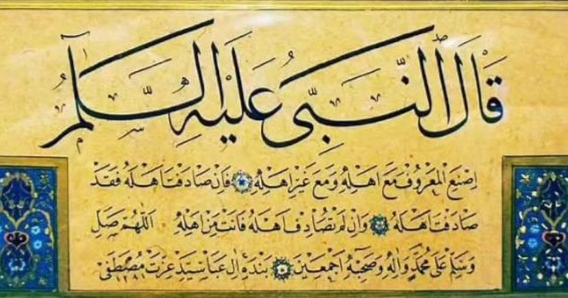 قَالَ النَّبِيُّ عَلَيْهِ السَّلٰمُ
اِصْنَعِ الْمَعْرُوفَ مَعَ اَهْلِهِ وَمَعَ غَيْرِ اَهْلِهِ فَاِنْ صَادَفْتَ اَهْلَهُ فَقَدْ
صَادَفْتَ اَهْلَهُ وَاِنْ لَمْ تُصَادِفْ اَهْلَهُ فَاَنْتَ مِنْ اَهْلِهِ اَللّٰهُمَّ صَلِّ
وَسَلِّمْ عَلٰى مُحَمَّدٍ وَاٰلِهِ وَصَحْبِهِ اَجْمَعِينَ بندهٔ اٰل عبا سيد عزت مصطفى